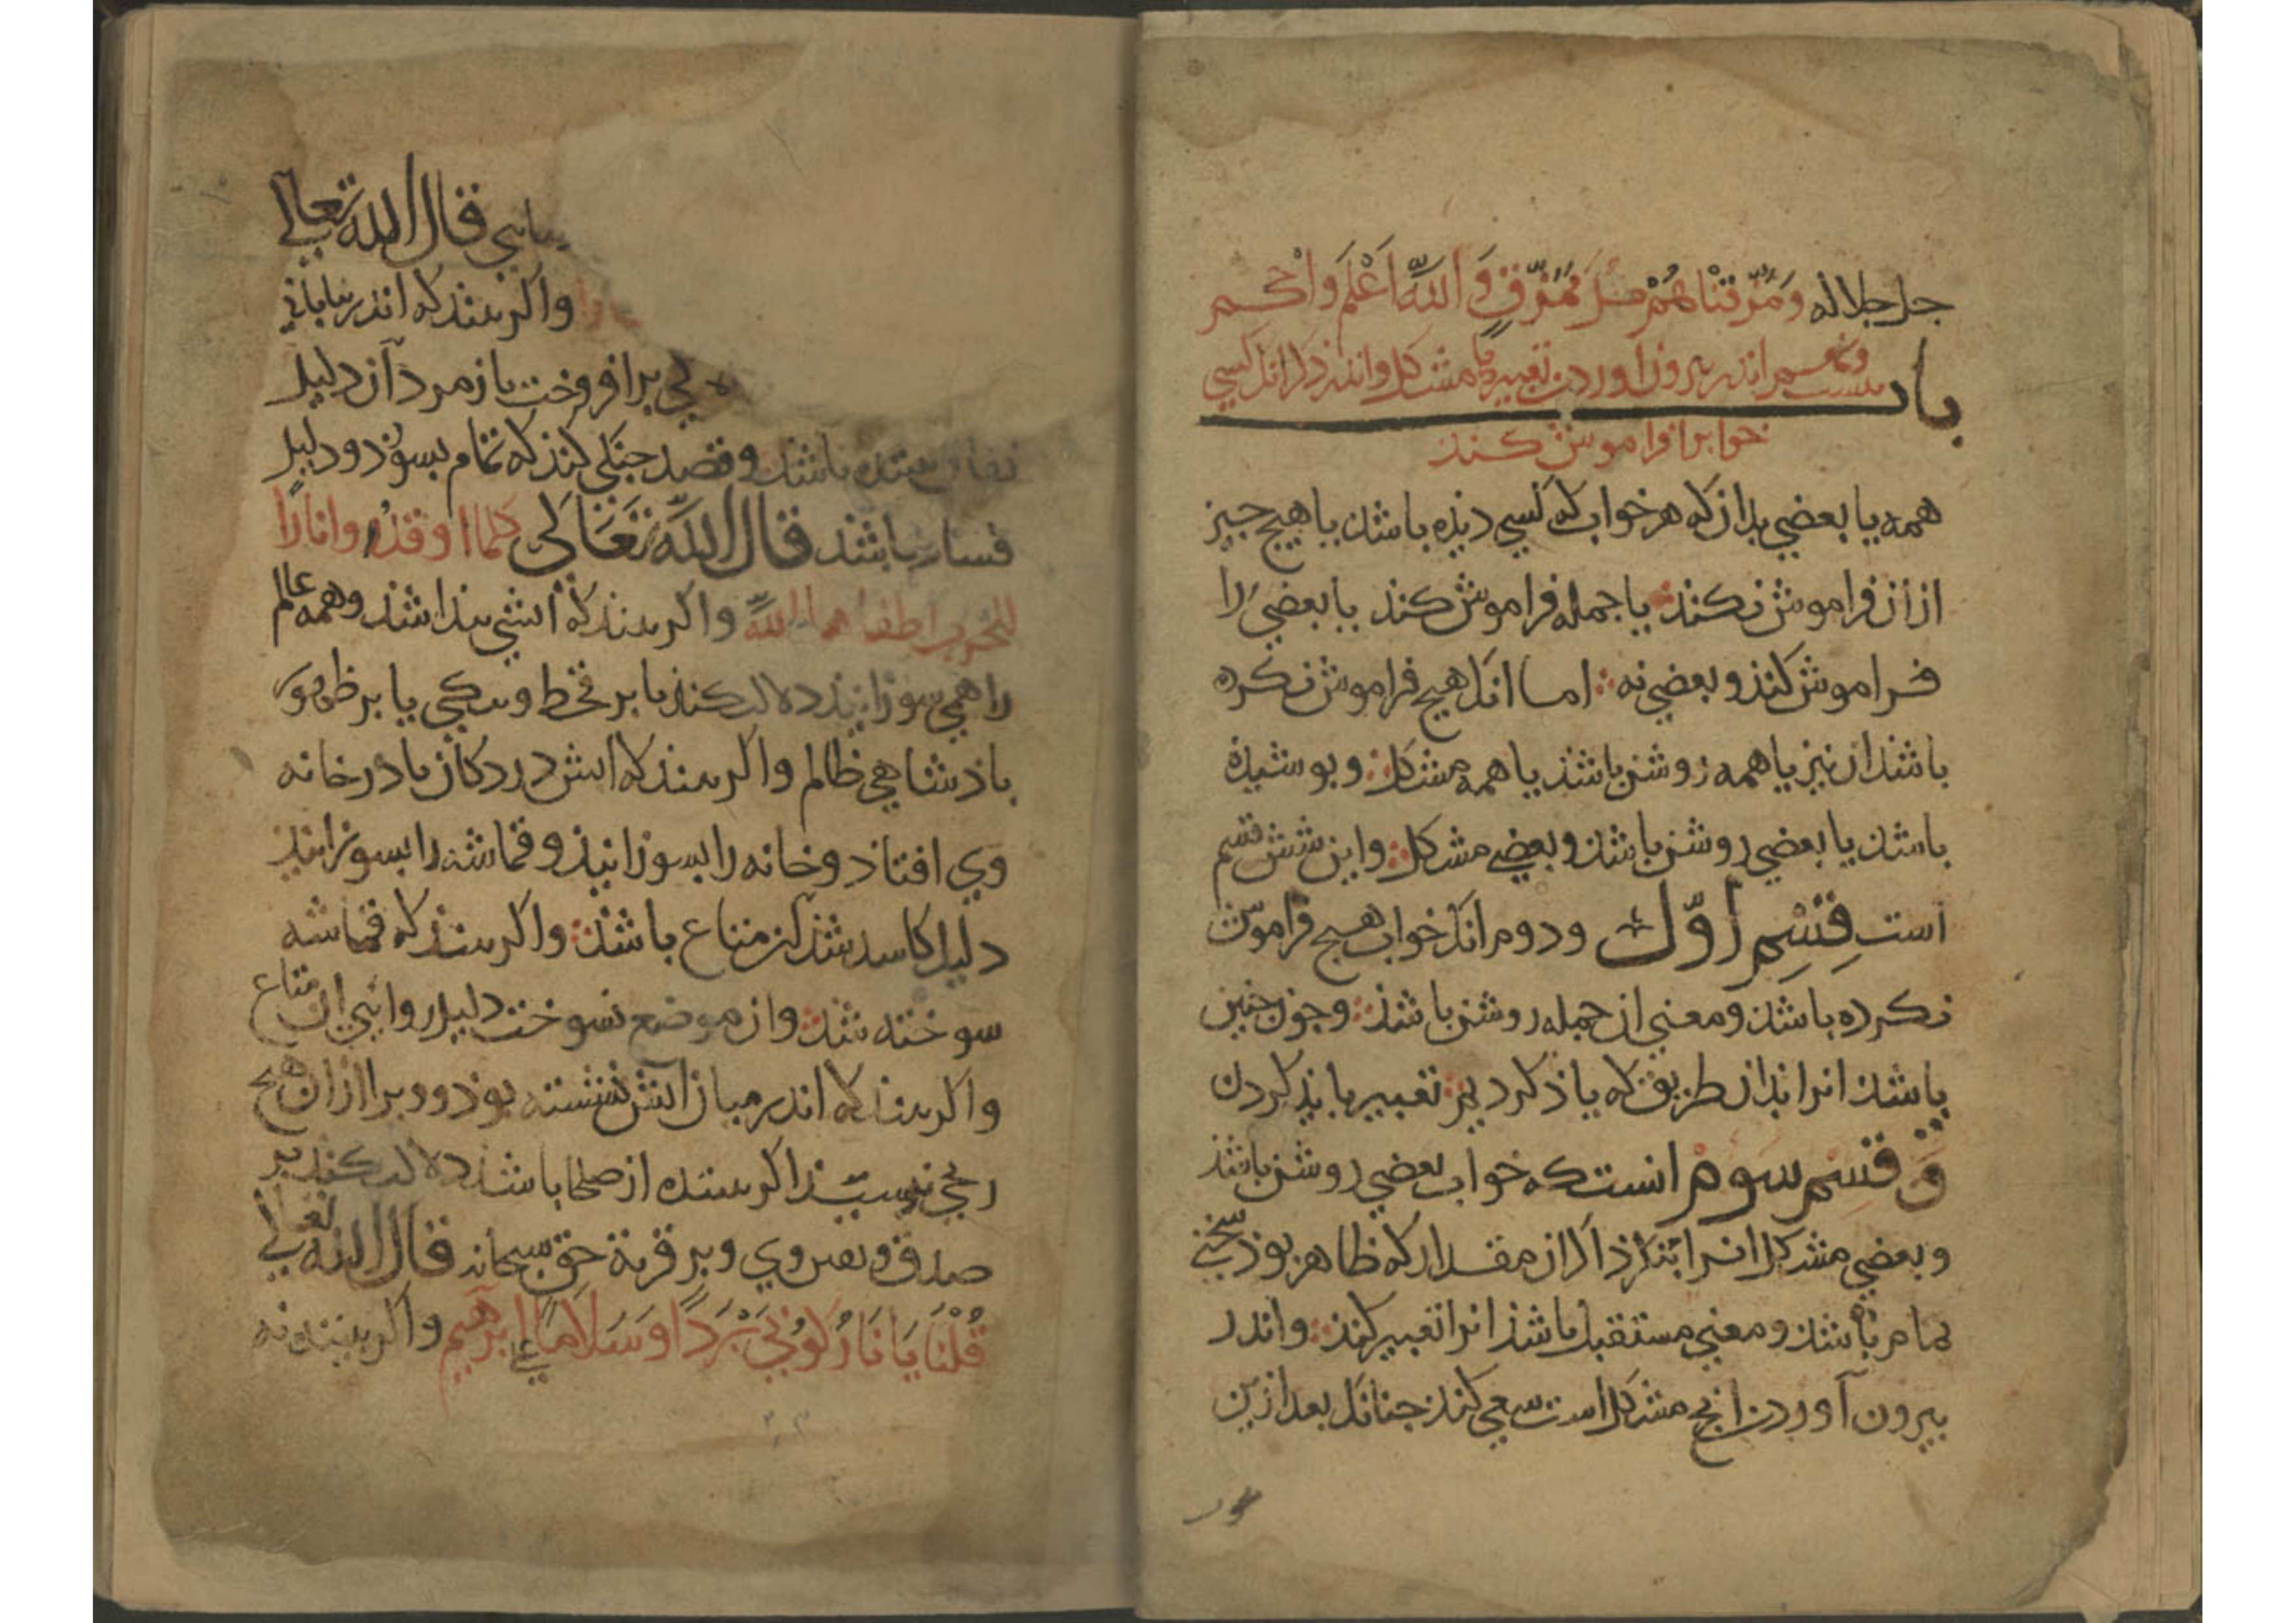 جل جلاله وَمَزَّقْنَاهُمْ كُلَّ مُمَزَّقٍ وَاللّهُ اَعْلَمُ وَاَحْكَم
باب بیست ونهم اندر بیرون اوردن تعبیرهای مشکل واندر ذکر انک کسی
خواب را فراموش کند
همه یا بعضی بدانک هر خواب که کسی دیذه باشد یا هیچ جیز
از ان فراموش نکند یا جمله فراموش کند یا بعضی را
فراموش کند و بعضی نه اما انک هیچ فراموش نکرده
باشد ان نیز یا همه روشن باشذ یا همه مشکل و بوشیذه
باشد یا بعضی روشن باشد و بعضی مشکل و این شش قسم
است قِسْمِ اوّل ودوم انک خواب هیچ فراموش
نکرده باشد ومعنی ان جمله روشن باشذ وجون جنین
باشد انرا بذان طریق که یاذ کردیم تعبیر بایذ کردن
و قسم سوم انست که خواب بعضی روشن باشذ
وبعضی مشکل انرا بنگرذ اگر از مقدار که ظاهر بوذ سخنی
تمام باشد ومعنی مستقیل باشذ انرا تعبیر کند واندر
بیرون آوردن انج مشکل است سعی کند جنانک بعد ازین
قال الله تعالی
واکر بیند که اندر بیابانی
بر افروخت تا زمرد آن دلیل
باشد وقصد جنگی کند که تمام بسوذ ودلیل
فساد باشذ قال اللّه تَعَالَی کلما اوقدُوا نارًا
للحَرب اطفاها اللّه واکر بیند که آتشی بیدا شذ وهمه عالم
را همی سوزانید دلالت کند یا بر قحط وتنکی یا بر ظهور
باذشاهی ظالم واکر بیند که اتش در دکان یا در خانه
وی افتاذ وخانه را بسوزانید وقماشه را بسوزانید
دلیل کاسد شدن متاع باشد واکر بیند که قماشه
سوخته شد وان موضع نسوخت دلیل روایی ان متاع
واکر بیند که اندر میان آتش نشسته بوذ وویرا از ان هیچ
رنجی نرسیذ اکر بیننده از صلحا باشد دلالت کند بر
صدق ویقین وی وبر قربة حق سبحانه قال الله تعالی
قُلْنَا یَا نَارُ کُونِي بَرْدًا وَسَلَامًا علی ابرهیم واکر بیننده نه